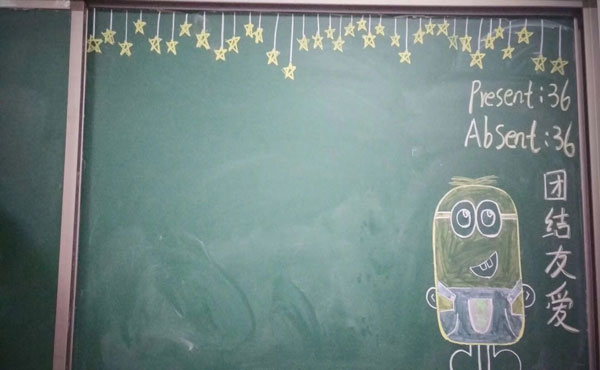 Present:36
Absent:36
团结友爱